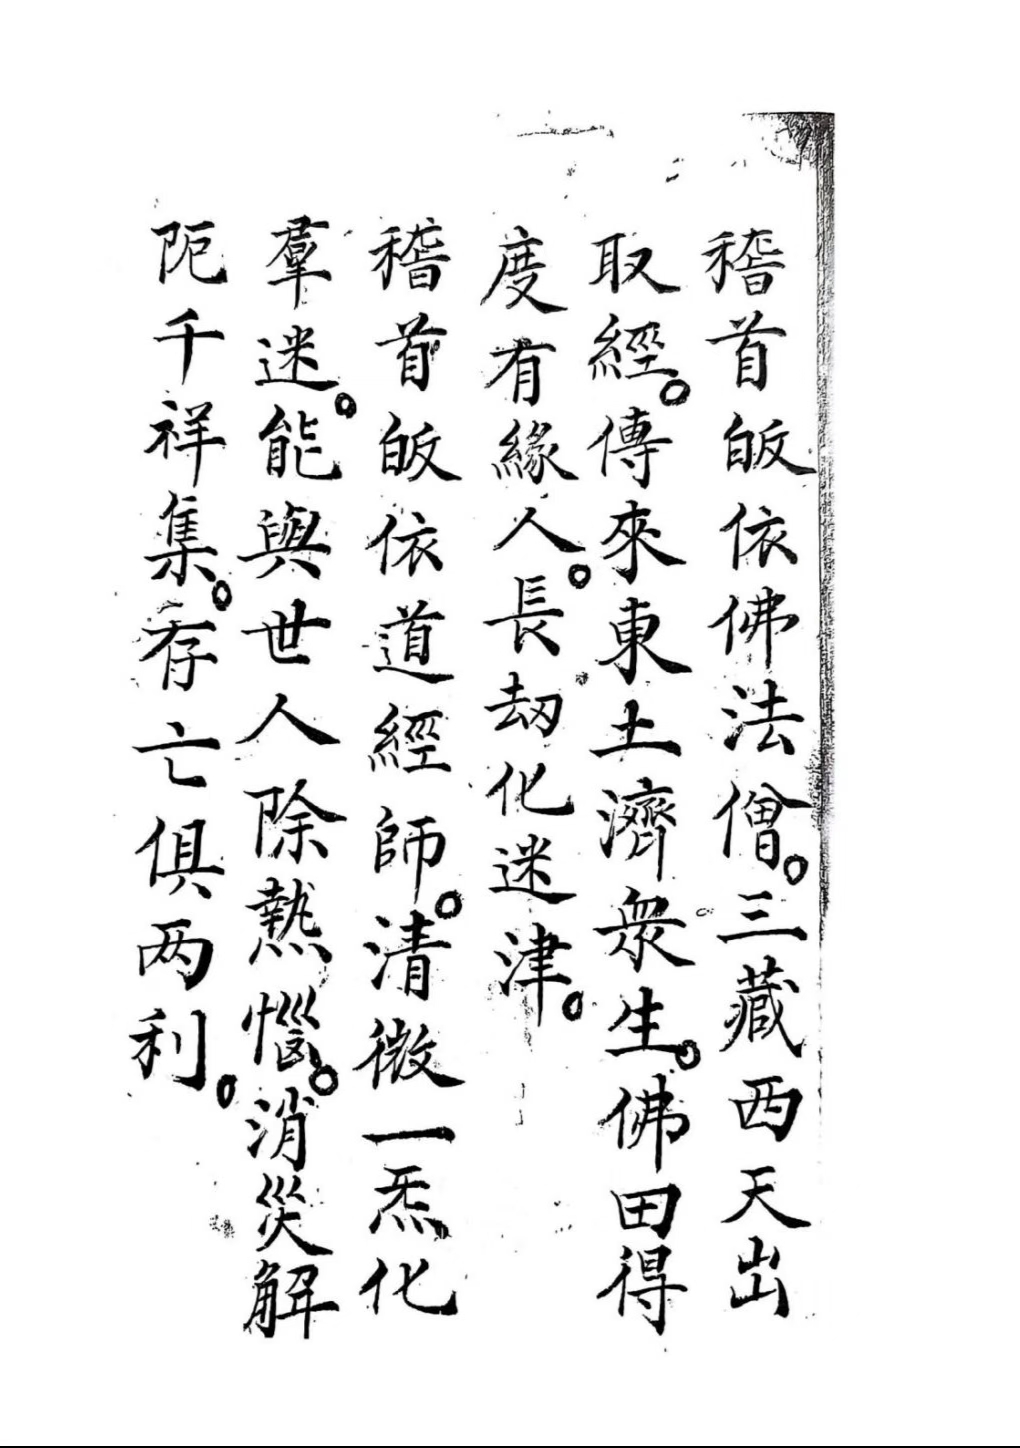 稽首皈依佛法僧。三藏西天出
取經。傳來東土濟衆生。佛田得
度有緣人。長劫化迷津。
稽首皈依道經師。清微一炁化
羣迷。能與世人除熱惱。消災解
阨千祥集。存亡俱两利。